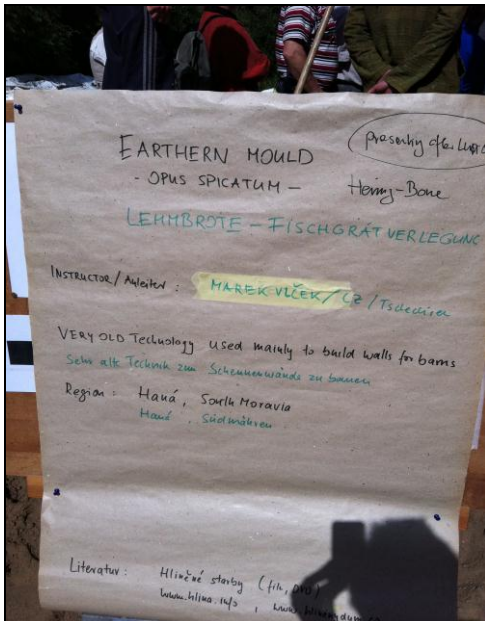 presenting after Lunch
EARTHERN MOULD
- OPUS SPICATUM - Hering-Bone
LEHMBROTE - FISCHGRÄTVERLEGUNG
INSTRUCTOR / Anleiter : MAREK VLČEK / CZ / Tschechien
VERY OLD Technology used mainly to build walls for barns
Sehr alte Technik zum Scheunenwände zu bauen
Region : Haná, South Moravia
Haná, Südmähren
Literatur : Hliněné stavby (film, DVD)
www.hlina.info ,